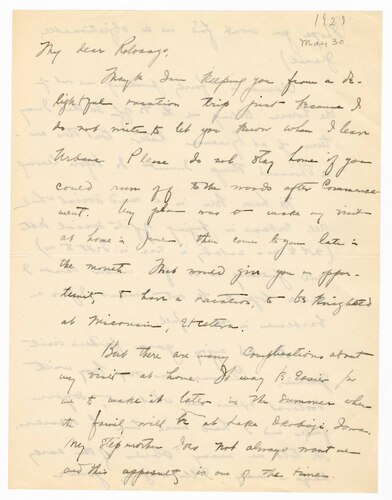 1929
May 30
My dear Rolvaag,
Maybe I am keeping you from a de-
lightful vacation trip just because I
do not write to let you know when I leave
Urbana. Please do not stay home if you
could run off to the woods after Commence-
ment. My plan was to make my visit
at home in June, then come to you late in
the month. That would give you an oppor-
tunity to have a vacation, to be knighted
at Wisconsin, etcetera.
But there are many complications about
my visit at home. It may be easier for
me to make it later in the summer when
the family will be at Lake Okoboji, Iowa.
My stepmother does not always want me
and this apparently is one of the times.